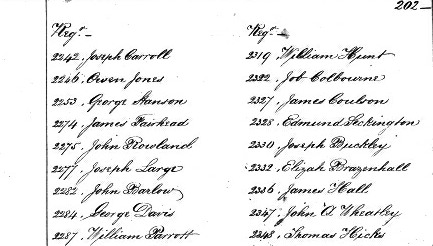 202-
Regr.
2242. Joseph Carroll
2246. Owen Jones
2253. George Hanson
2274. James Fairhead
2275. John Rowland
2277. Joseph Large
2282. John Barlow
2284. George Davis
2287. William Parrott
Regr.
2319. William Hunt
2322. Job Colbourne
2327. James Coulson
2328. Edmund Peckington
2330. Joseph Buckley
2332. Elizah Brazenhall
2336. James Hall
2347. John A. Wheatley
2348. Thomas Hicks